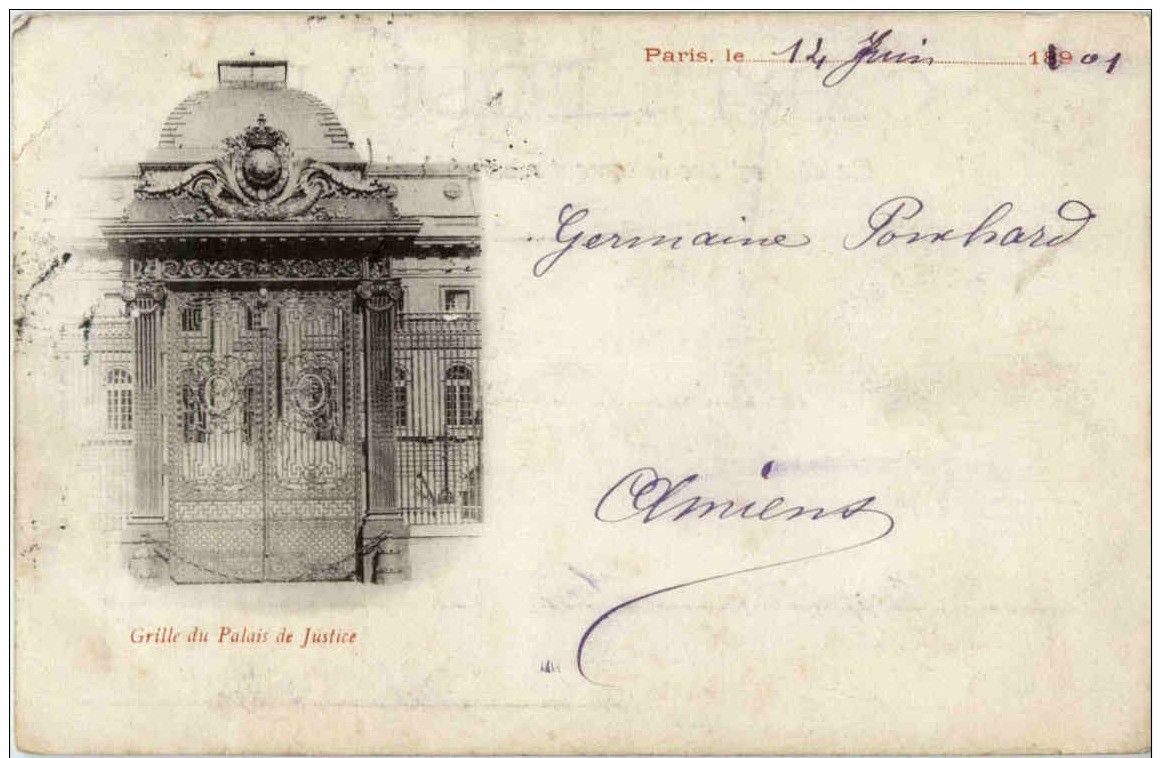 Paris, le 14 Juin 1901
Germaine Ponchard
Amiens
Grille du Palais de Justice